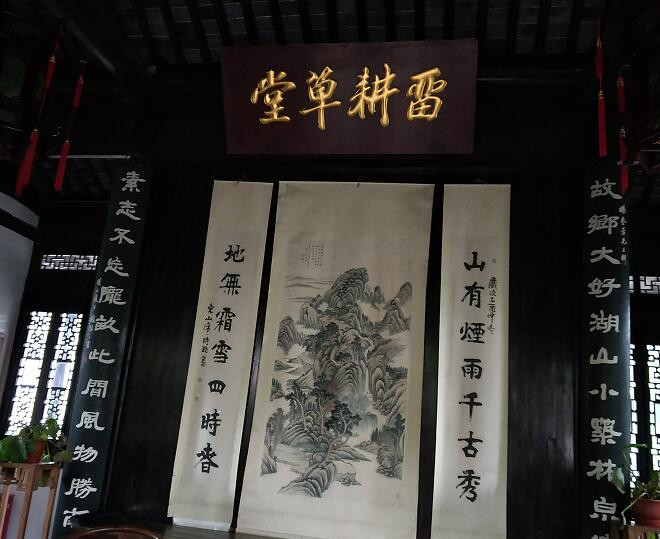 留耕草堂
故鄉大好湖山小築林泉
山有煙雨千古秀
歲次乙酉仲冬
地無霜雪四時春
素志不忘隴畝此間風物勝